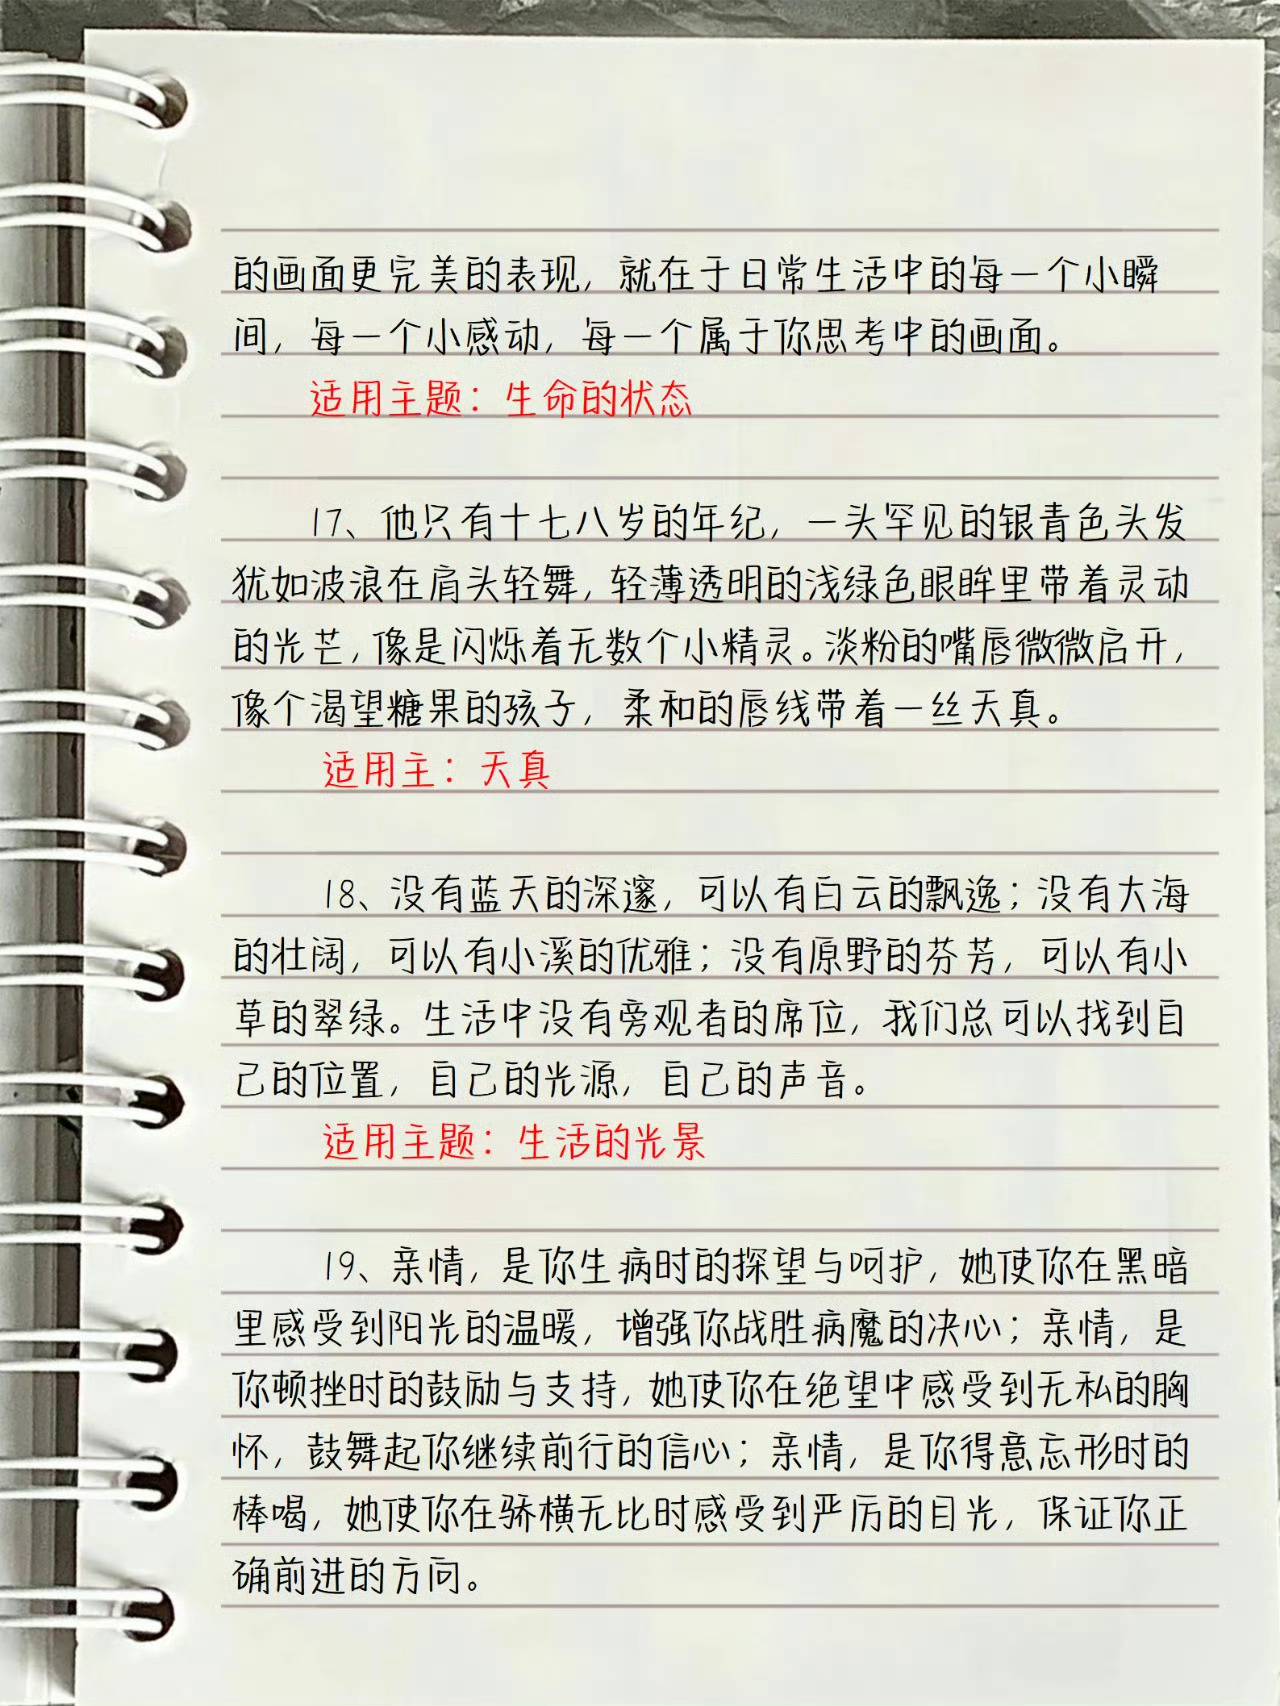 的画面更完美的表现，就在于日常生活中的每一个小瞬
间，每一个小感动，每一个属于你思考中的画面。
适用主题：生命的状态
17、他只有十七八岁的年纪，一头罕见的银青色头发
犹如波浪在肩头轻舞，轻薄透明的浅绿色眼眸里带着灵动
的光芒，像是闪烁着无数个小精灵。淡粉的嘴唇微微启开，
像个渴望糖果的孩子，柔和的唇线带着一丝天真。
适用主：天真
18、没有蓝天的深邃，可以有白云的飘逸；没有大海
的壮阔，可以有小溪的优雅；没有原野的芬芳，可以有小
草的翠绿。生活中没有旁观者的席位，我们总可以找到自
己的位置，自己的光源，自己的声音。
适用主题：生活的光景
19、亲情，是你生病时的探望与呵护，她使你在黑暗
里感受到阳光的温暖，增强你战胜病魔的决心；亲情，是
你顿挫时的鼓励与支持，她使你在绝望中感受到无私的胸
怀，鼓舞起你继续前行的信心；亲情，是你得意忘形时的
棒喝，她使你在骄横无比时感受到严厉的目光，保证你正
确前进的方向。